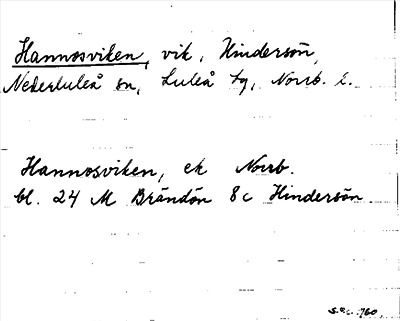 Hannosviken, vik, Hindersön,
Nederluleå sn, Luleå tg, Norrb. l.
Hannosviken, ek Norrb.
bl. 24 M Brändön 8c Hindersön